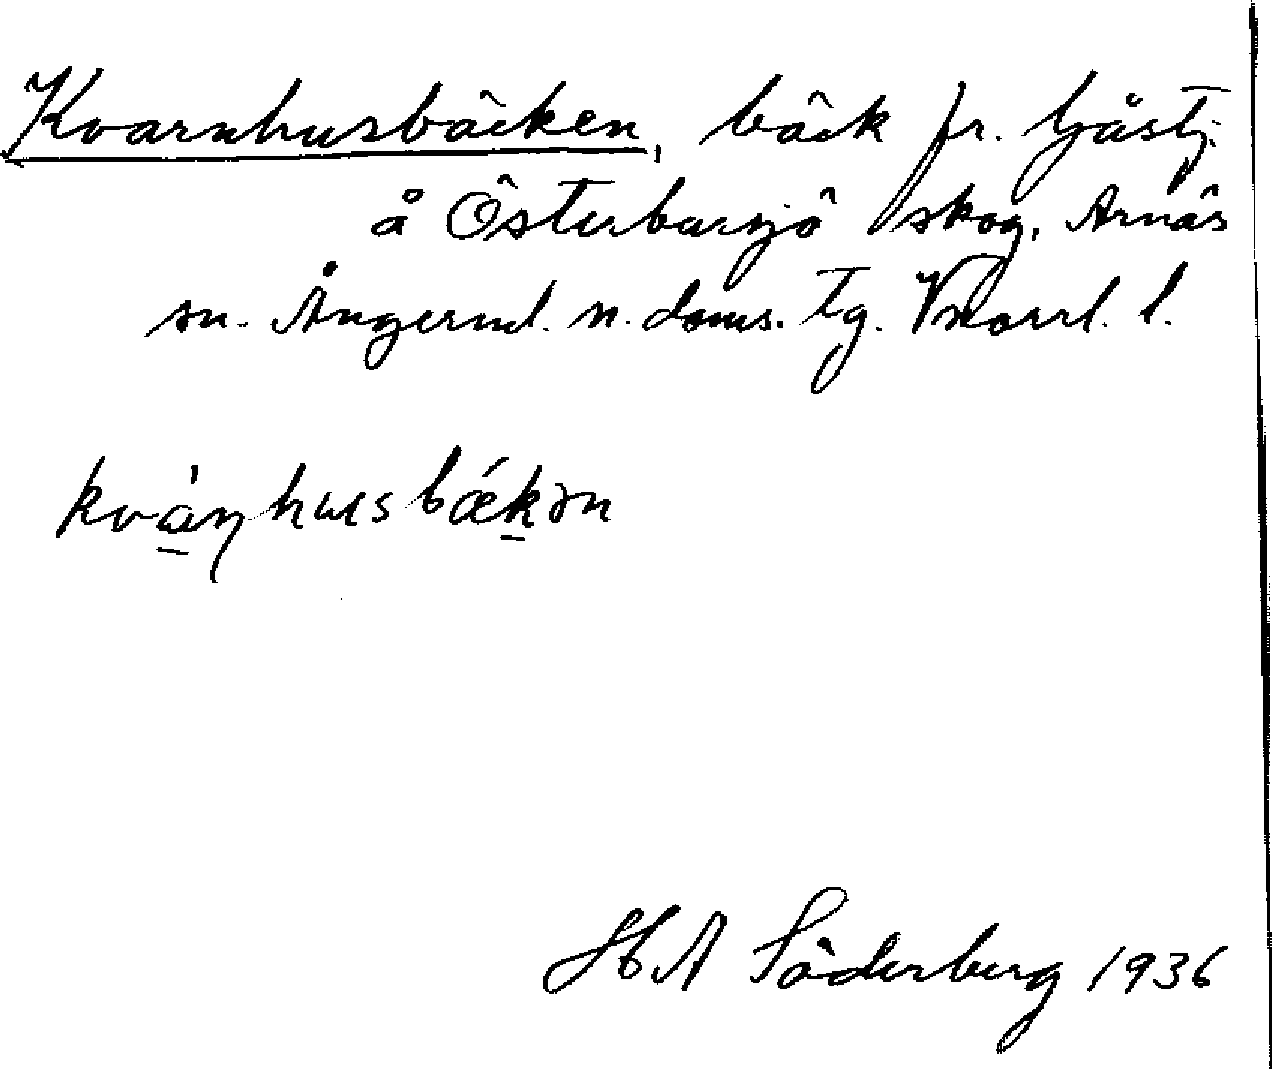 Kvarnhusbäcken, bäck fr. Gåstj.
å Österbursjö skog, Arnäs
sn. Ångerml. n. doms. tg. Vnorrl. l.
kvàɳhusbǽkən
HA Söderberg 1936